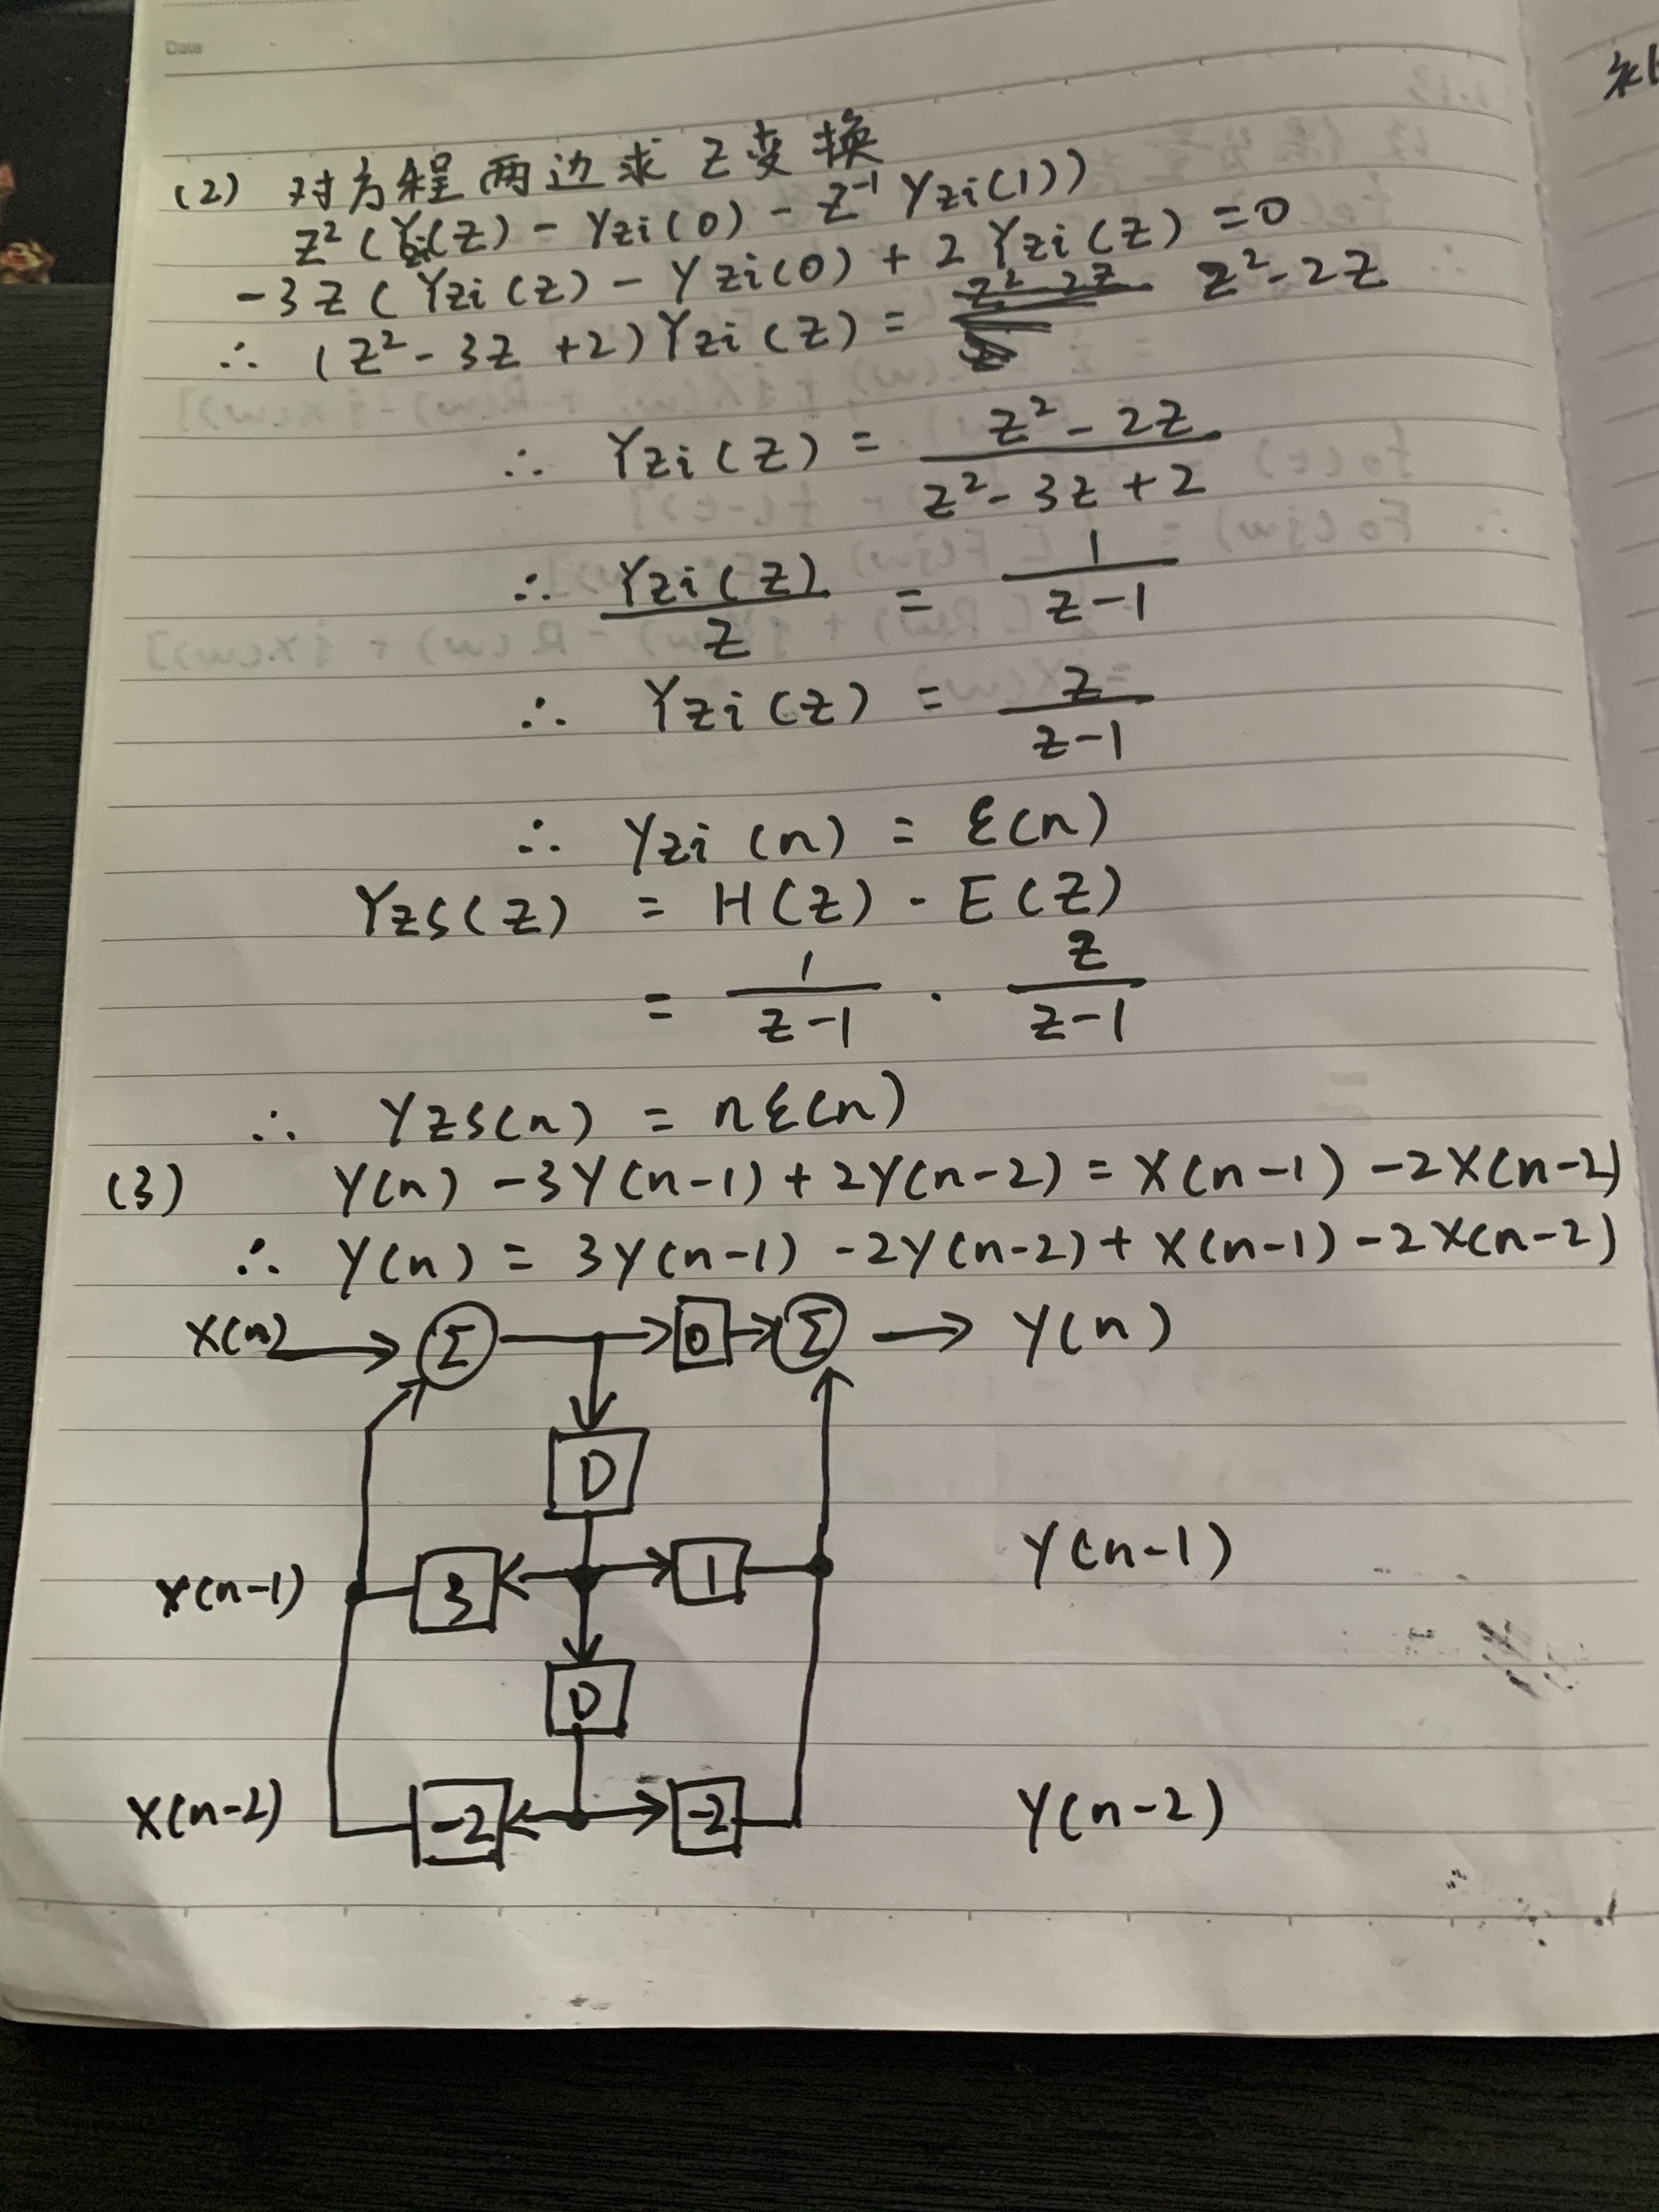 Date
(2) 对方程两边求Z变换
z²(Yzi(z) - Yzi(0) - z⁻¹ Yzi(1))
-3z(Yzi(z) - Yzi(0) + 2Yzi(z) = 0
∴ (z² - 3z + 2)Yzi(z) = z² - 2z
∴ Yzi(z) = (z² - 2z)/(z² - 3z + 2)
∴ Yzi(z)/z = 1/(z-1)
∴ Yzi(z) = z/(z-1)
∴ Yzi(n) = ε(n)
Yzs(z) = H(z) · E(z)
= 1/(z-1) · z/(z-1)
∴ Yzs(n) = nε(n)
(3) Y(n) - 3Y(n-1) + 2Y(n-2) = X(n-1) - 2X(n-2)
∴ Y(n) = 3Y(n-1) - 2Y(n-2) + X(n-1) - 2X(n-2)
X(n) Σ 0 Σ Y(n)
D
X(n-1) 3 1 Y(n-1)
D
X(n-2) -2 -2 Y(n-2)